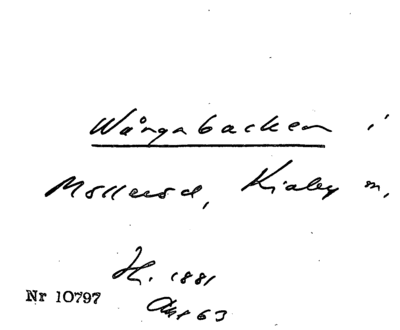 Wångabacken i
Möllersd, Kiaby m,
H. 1881
Nr 10797
63